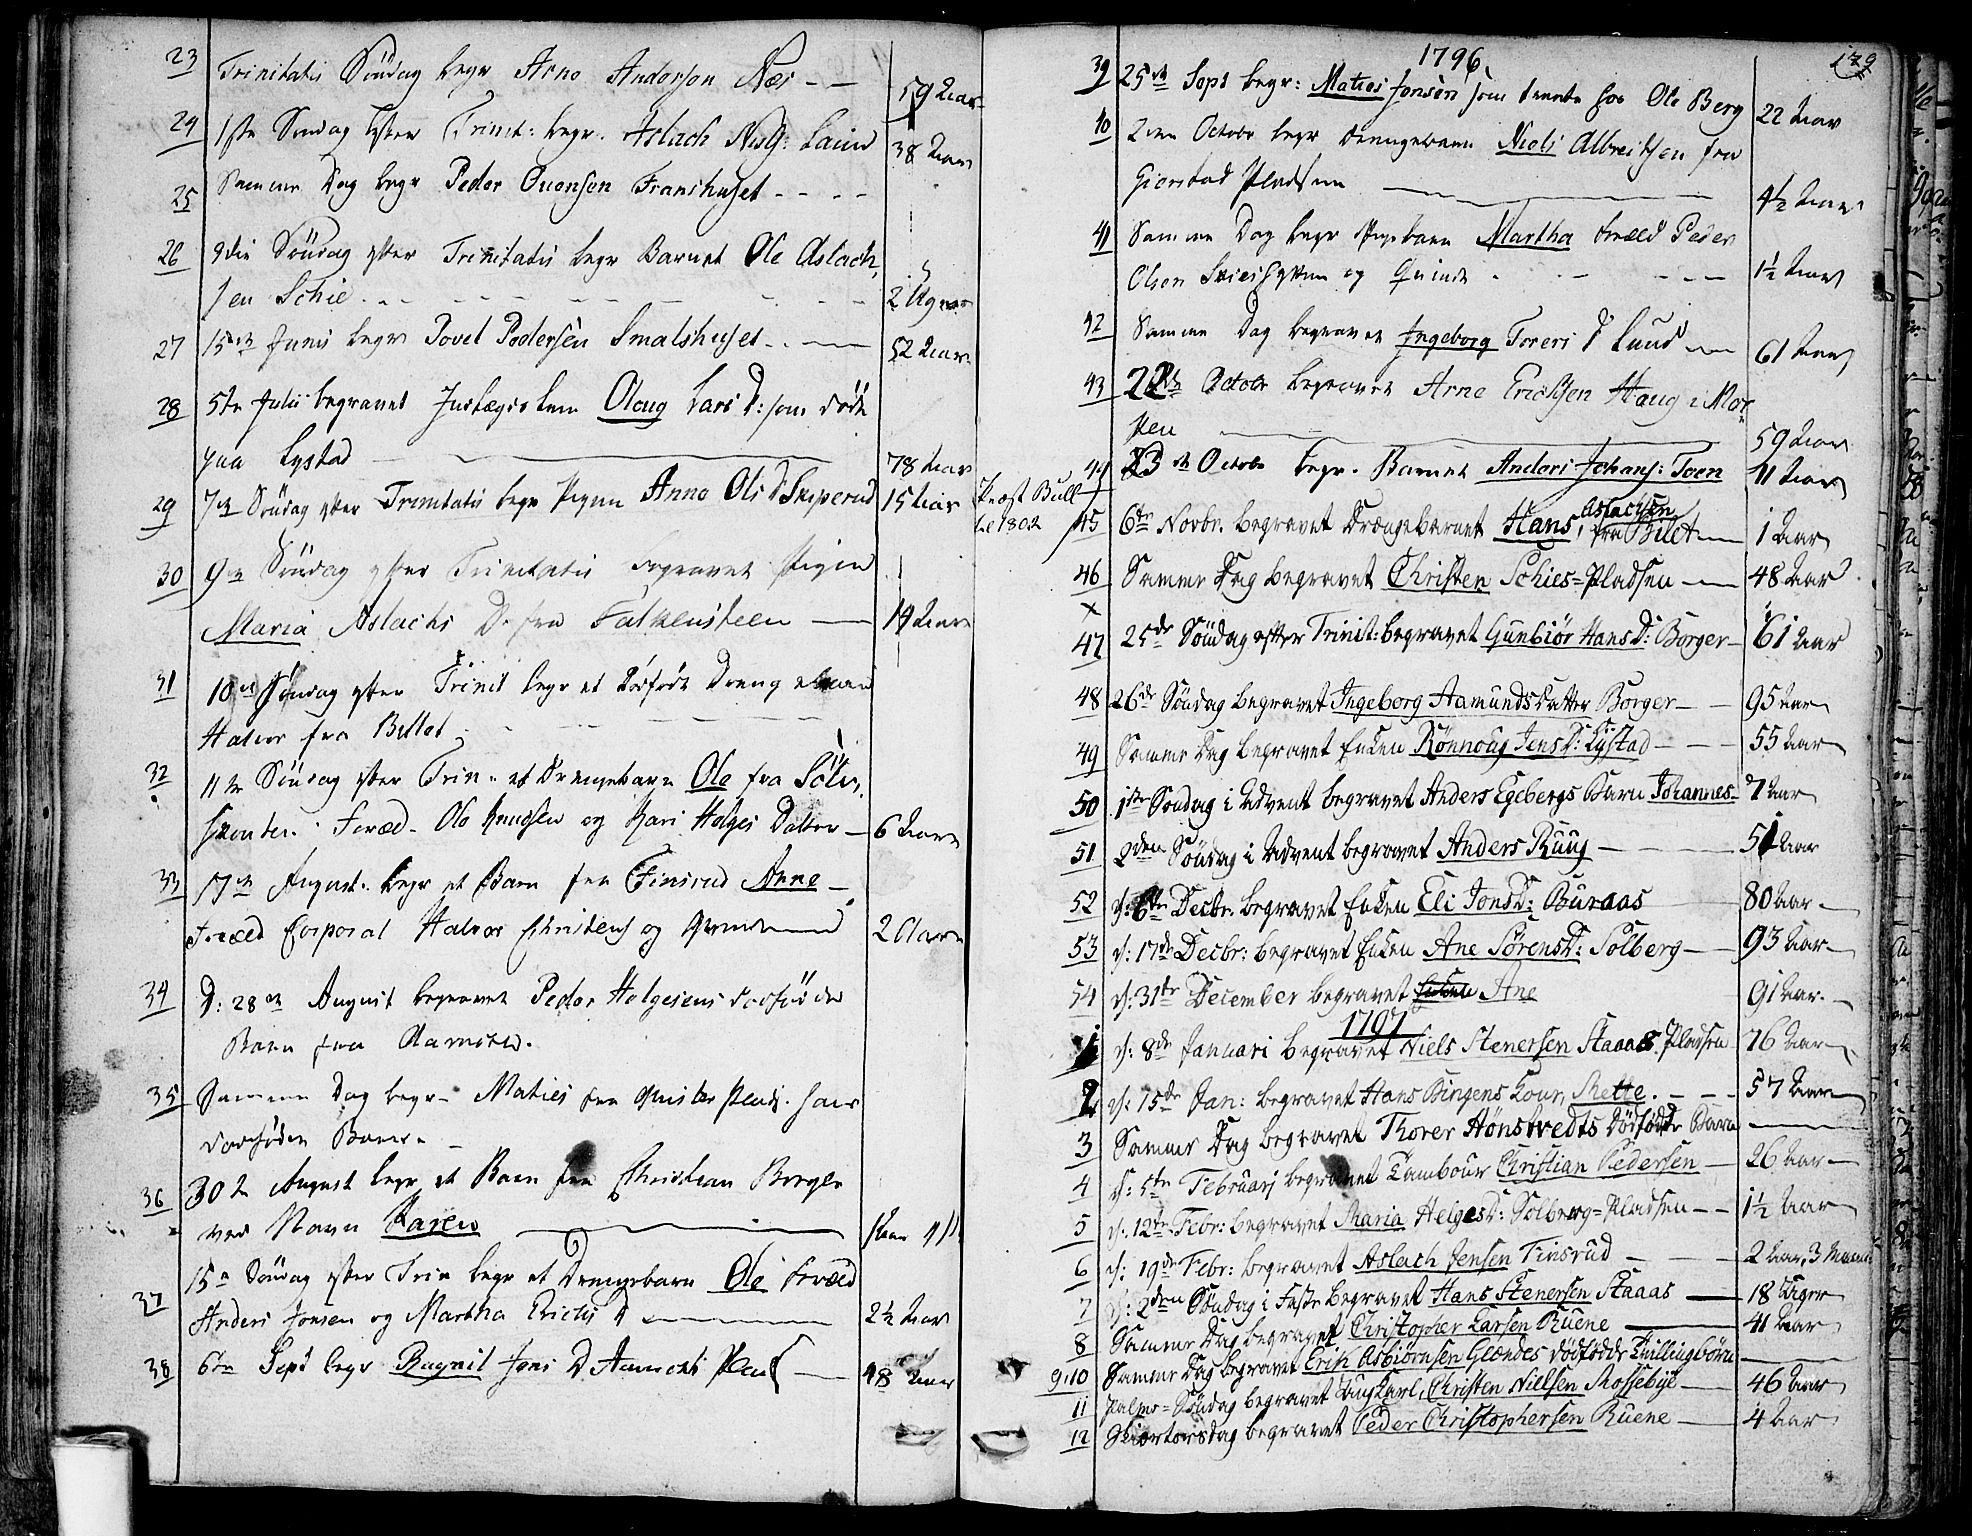 23 Trinitatis Söndag begr Arne Andersen Næs - - 59 Aar
24 1ste Söndag efter Trinit: begr. Aslach 38 Aar
25 Samme Dag begr Peder Franshuset - - - -
26 2den Söndag efter Trinitatis begr Barnet Ole Aslach,
sen Schie - - - 2 Uger
27 15de Junii begr Povel Pedersen Smalshuset - - 52 Aar
28 5te Julii begravet Olaug Lars D: som döde
paa Lystad 78 Aar
29 7de Söndag efter Trinitatis begr Pigen Anne Ols D Skiperud 15 Aar
30 9de Söndag efter Trinitatis begravet Pigen
Maria Aslachs D. fra Falkensteen 14 Aar
31 10de Söndag efter Trinit begr et dödfödt Dreng
Halvor fra Billet
32 11te Söndag efter Trin. et Drengebarn Ole fra
Foræld. Ole Knudsen og Kari Helges Datter 6 Aar
33 17de August. begr et Barn fra Finsrud Anne
Foræld Corporal Halvor Christens og Qvinde 2 Aar
34 D: 28de August begravet Peder Helgesens dödfödde
Barn fra
35 Samme Dag begr. Maties fra Plads. hans
dödfödde Barn
36 30te August begr et Barn fra Christian Borger
ved Navn Karen
37 15de Söndag efter Trin begr et Drengebarn Ole Foræld
Anders Jonsen og Martha Erichs D 2½ Aar
38 6te Sept begr Ragnil Jons D Plads 48 Aar
1796. 179
39 25de Sept begr: Maties Jonsen som tiente hos Ole Berg 22 Aar
40 2den Octobr begr Drengebarn Niels Albreitsen fra
Gierstad Pladsen 4½ Aar
41 Samme Dag begr Pigebarn Martha Foræld Peder
Olsen og Qvinde 1½ Aar
42 Samme Dag begravet Ingeborg Torers D Lund 61 Aar
43 22de Octobr begravet Arne Erichsen Haug i Mor
sken 59 Aar
44 23de Octobr begr. Barnet Anders Johans: Toen 11 Aar
Præst Bull
til 1802
45 6te Novbr. begravet Drængebarnet Hans, Aslachsen fra Bilet 1 Aar
46 Samme Dag begravet Christen Schies=Pladsen 48 Aar
×
47 25de Söndag efter Trinit: begravet Gunbiör HansD: Borger 61 Aar
48 26de Söndag begravet Ingeborg Aamundsdatter Borger 95 Aar
49 Samme Dag begravet Enken Rönnoug JensD: Lystad 55 Aar
50 1ste Söndag i Advent begravet Anders Egebergs Barn Johannes 7 Aar
51 2den Söndag i Advent begravet Anders Ruuj 51 Aar
52 d: 6te Decbr. begravet Enken Eli JonsD: Buraas 80 Aar
53 d: 17de Decbr: begravet Enken Ane SörensD: Solberg 93 Aar
54 d: 31te December begravet Enken Ane 91 Aar
1797
1 d: 8de Januari begravet Niels Stenersen Staaas Pladsen 76 Aar
2 d: 15de Jan: begravet Hans Bingens Kone, Mette 57 Aar
3 Samme Dag begravet Thorer Hönstvedts dödfödde Barn
4 d: 5te Februarj begravet Tambour Christian Pedersen 26 Aar
5 d: 12te Febr: begravet Maria HelgesD: Solberg=Pladsen 1½ Aar
6 d: 19de Febr: begravet Aslach Jensen Finsrud 2 Aar, 3 Maaned
7 d: 2den Söndag i Faste begravet Hans Stenersen Staaas 18 Uger
8 Samme Dag begravet Christopher Larsen Ruene 41 Aar
9,10 Samme Dag begravet Erik Asbiörnsen Glændes dödfödde Tvillingbörn
11 Palme=Söndag begravet Ungkarl, Christen Nielsen Mossebye 46 Aar
12 Skiertorsdag begravet Peder Christophersen Ruene 4 Aar